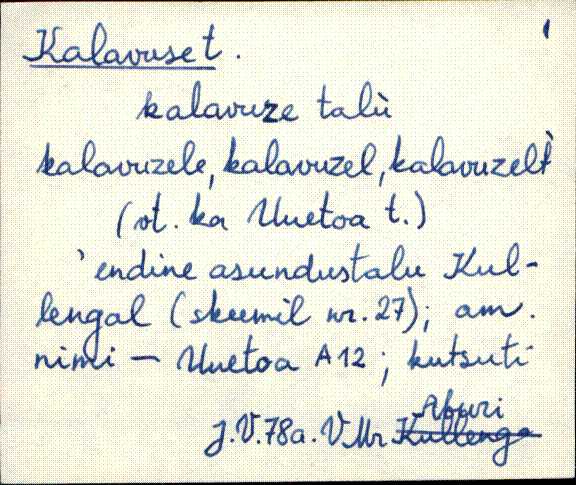 Kalavuse t.
kalavuze talù
kalavuzele, kalavuzel, kalavuzelt̀
(vt. ka Uuetoa t.)
'endine asundustalu Kul-
lengal (skeemil nr. 27); am.
nimi - Uuetoa A12; kutsuti
Aburi
J.V. 78a. V.Mr Kullenga